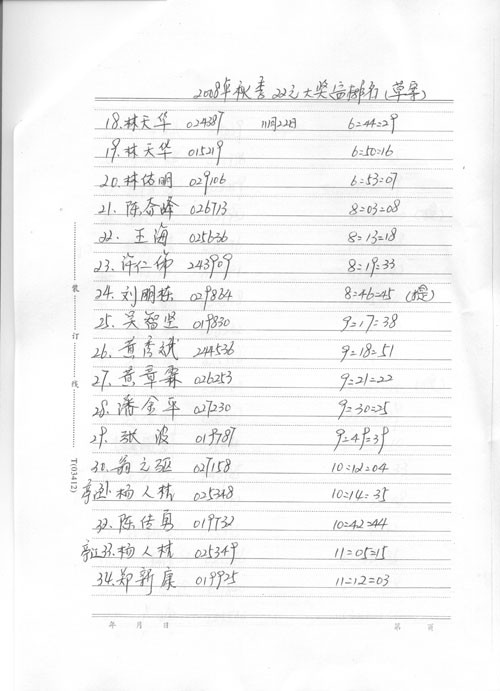 2008年秋季22元大奖 排行(草案)
18.林天华 024387 11月22日 6=44=29
19.林天华 015219 6=50=16
20.林佑明 029106 6=53=07
21.陈奇峰 026713 8=03=08
22.王海 025636 8=13=18
23.许仁伟 243909 8=19=33
24.刘朋栋 029864 8=46=45
25.吴智坚 019830 9=17=38
26.黄秀斌 244536 9=18=51
27.黄章霖 026253 9=21=22
28.潘金平 027230 9=30=25
29.张波 019787 9=49=39
30.翁元 027158 10=12=04
杨人 025348 10=14=35
32.陈传勇 019732 10=42=44
33.杨人 025349 11=05=15
34.郑新康 019925 11=12=03
装订线
T(03412)
年 月 日 第 页